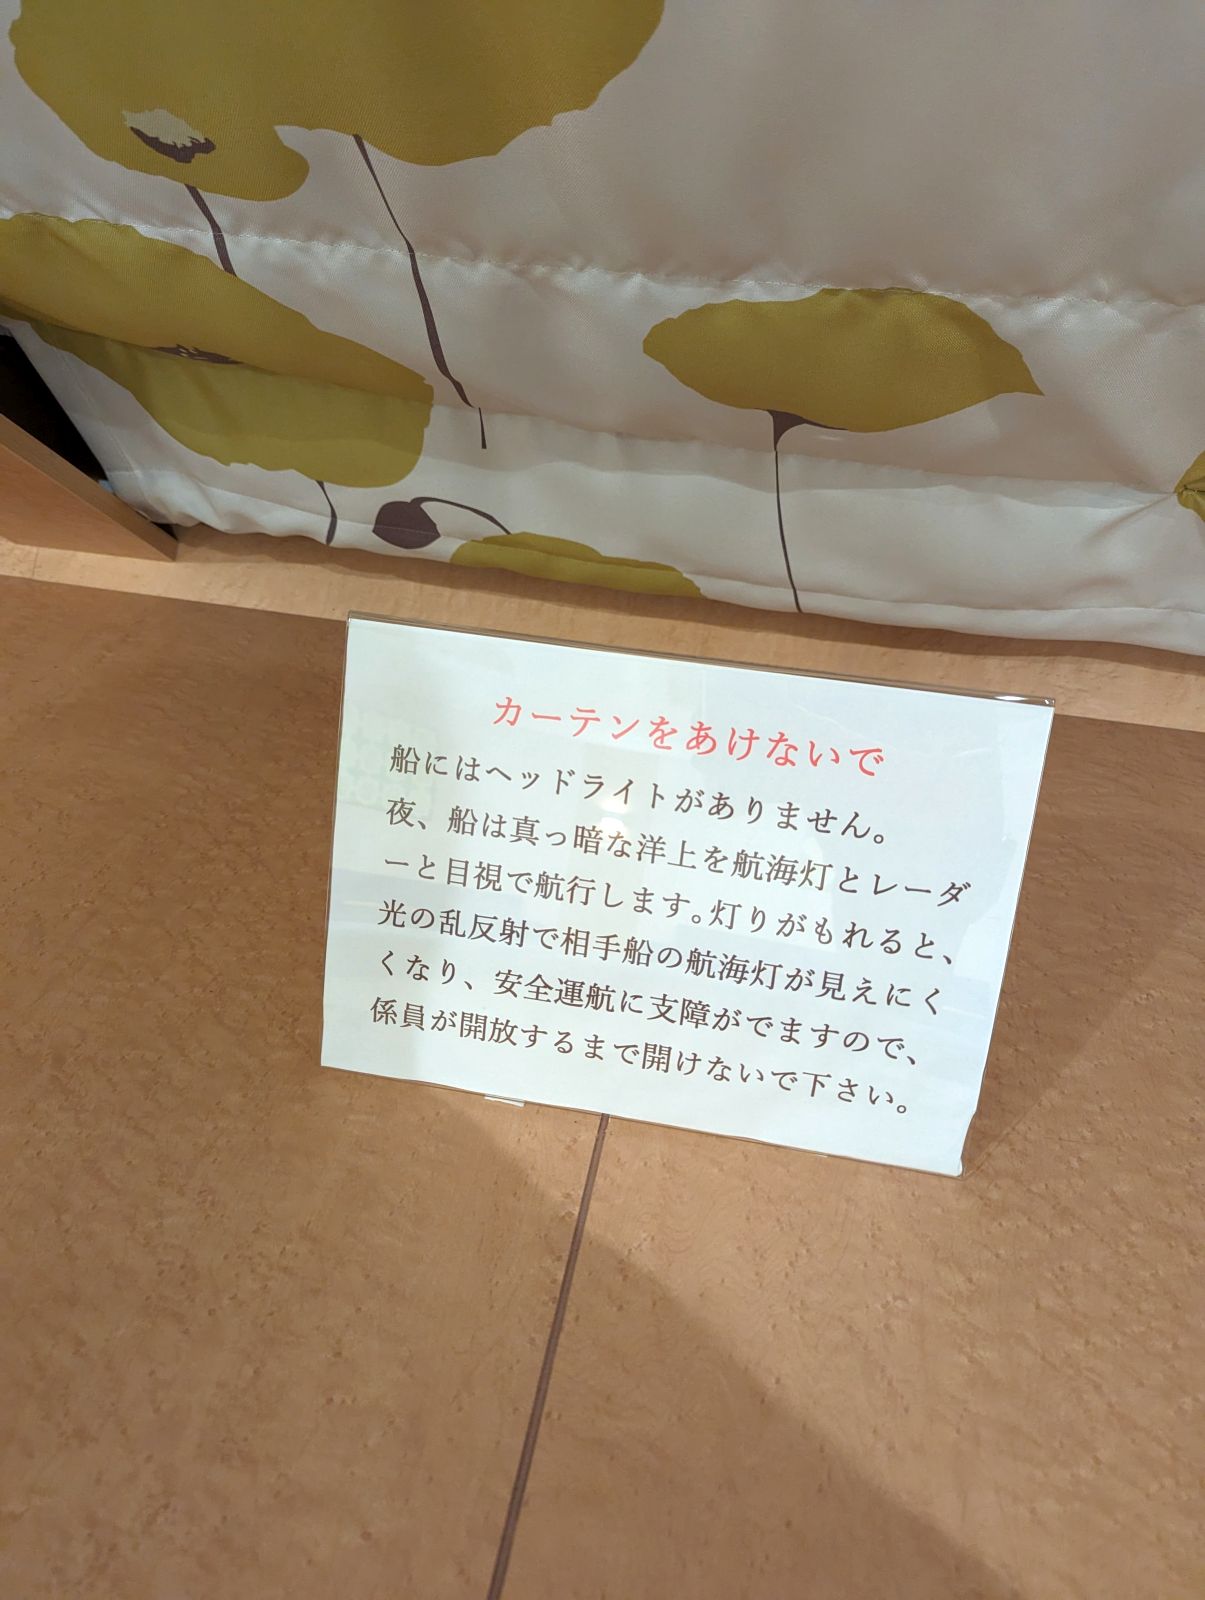 カーテンをあけないで
船にはヘッドライトがありません。
夜、船は真っ暗な洋上を航海灯とレーダ
ーと目視で航行します。灯りがもれると、
光の乱反射で相手船の航海灯が見えにく
くなり、安全運航に支障がでますので、
係員が開放するまで開けないで下さい。